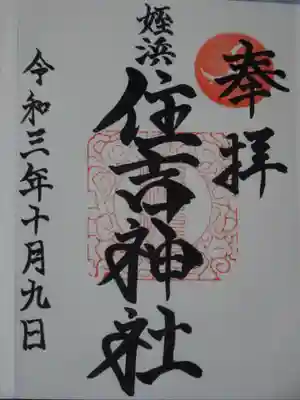 奉拝
姪浜
住吉神社
令和三年十月九日